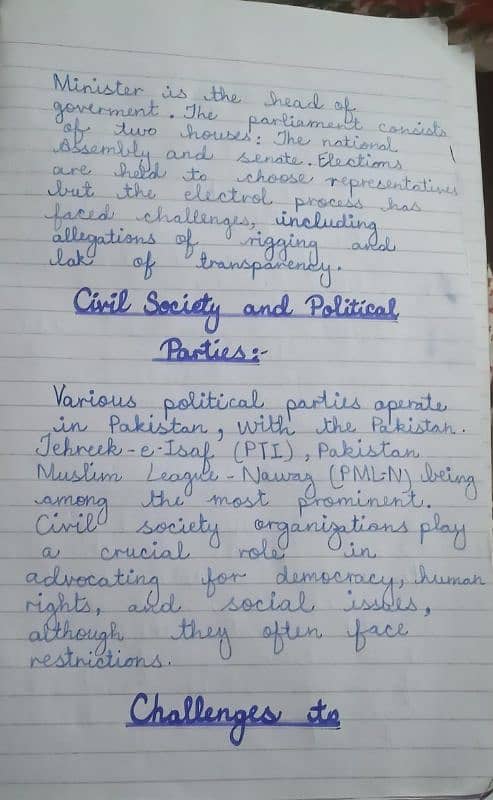 Minister is the head of
goverment. The parliament consists
of two houses: The national
Assembly and senate. Elections
are held to choose representatives
but the electrol process has
faced challenges, including
allegations of rigging and
lak of transparency.
Civil Society and Political
Parties:-
Various political parties operate
in Pakistan, with the Pakistan.
Tehreek-e-Isaf (PTI), Pakistan
Muslim League-Nawaz (PML-N) being
among the most prominent.
Civil society organizations play
a crucial role in
advocating for democracy, human
rights, and social issues,
although they often face
restrictions.
Challenges to